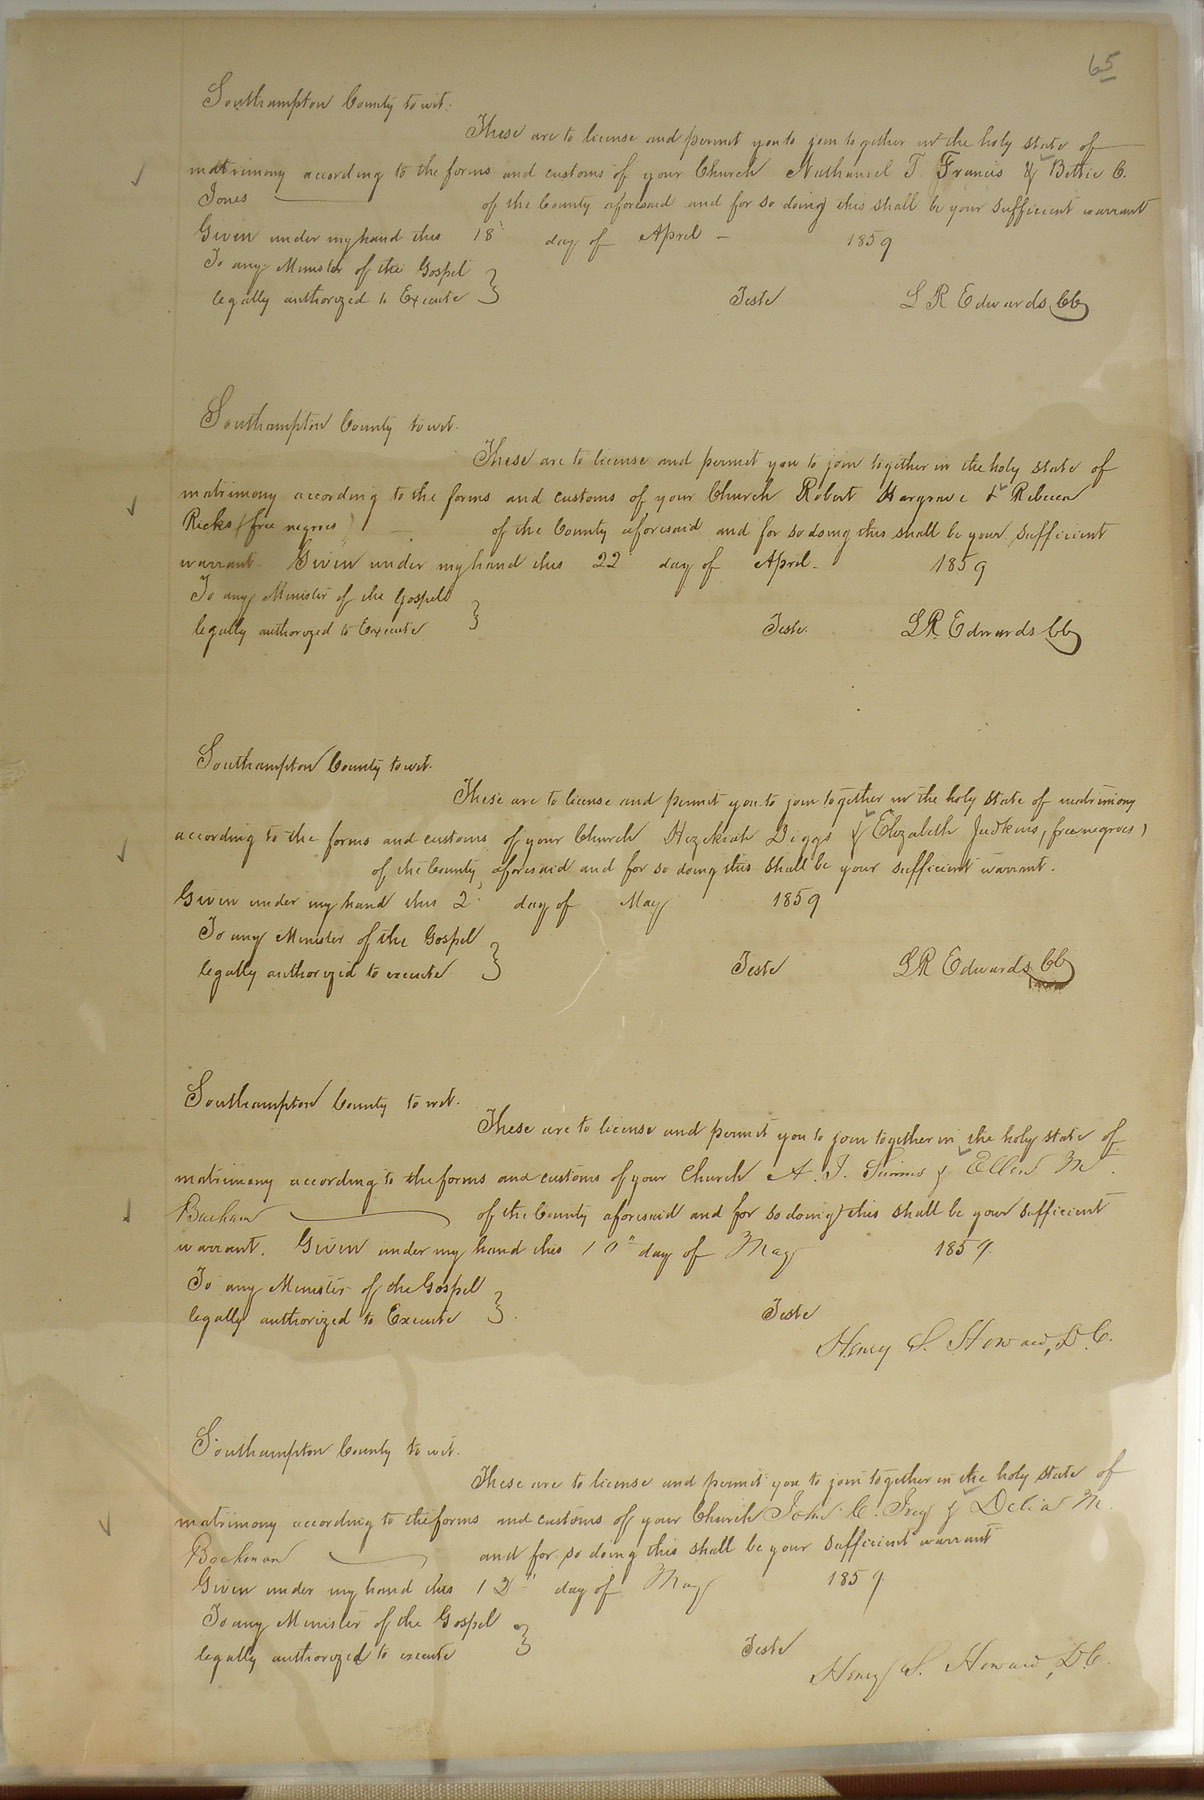 65
Southampton County to wit.
These are to license and permit you to join together in the holy state of
matrimony according to the forms and customs of your Church Nathaniel T. Francis & Bettie C.
Jones of the County aforesaid and for so doing this shall be your sufficient warrant
Given under my hand this 18 day of April 1859
To any Minister of the Gospel
legally authorized to Execute } Teste L R Edwards CC
Southampton County to wit.
These are to license and permit you to join together in the holy state of
matrimony according to the forms and customs of your Church Robert Hargrave & Rebecca
Ricks (free negroes) of the County aforesaid and for so doing this shall be your sufficient
warrant. Given under my hand this 22 day of April 1859
To any Minister of the Gospel
legally authorized to Execute } Teste. L R. Edwards CC
Southampton County to wit.
These are to license and permit you to join together in the holy state of matrimony
according to the forms and customs of your Church Hezekiah Diggs & Elizabeth Judkins, (free negroes)
of the County aforesaid and for so doing this shall be your sufficient warrant.
Given under my hand this 2 day of May 1859
To any Minister of the Gospel
legally authorized to execute } Teste L R Edwards CC
Southampton County to wit.
These are to license and permit you to join together in the holy state of
matrimony according to the forms and customs of your Church A. J. & Ellen M.
of the County aforesaid and for so doing this shall be your sufficient
warrant. Given under my hand this 10" day of May 1859.
To any Minister of the Gospel
legally authorized to Execute } Teste
Henry S. Howard, D.C.
Southampton County to wit.
These are to license and permit you to join together in the holy state of
matrimony according to the forms and customs of your Church John C. Ivey & Delia M.
and for so doing this shall be your sufficient warrant
Given under my hand this day of May 1859.
To any Minister of the Gospel
legally authorized to execute } Teste
Henry S. Howard, D.C.